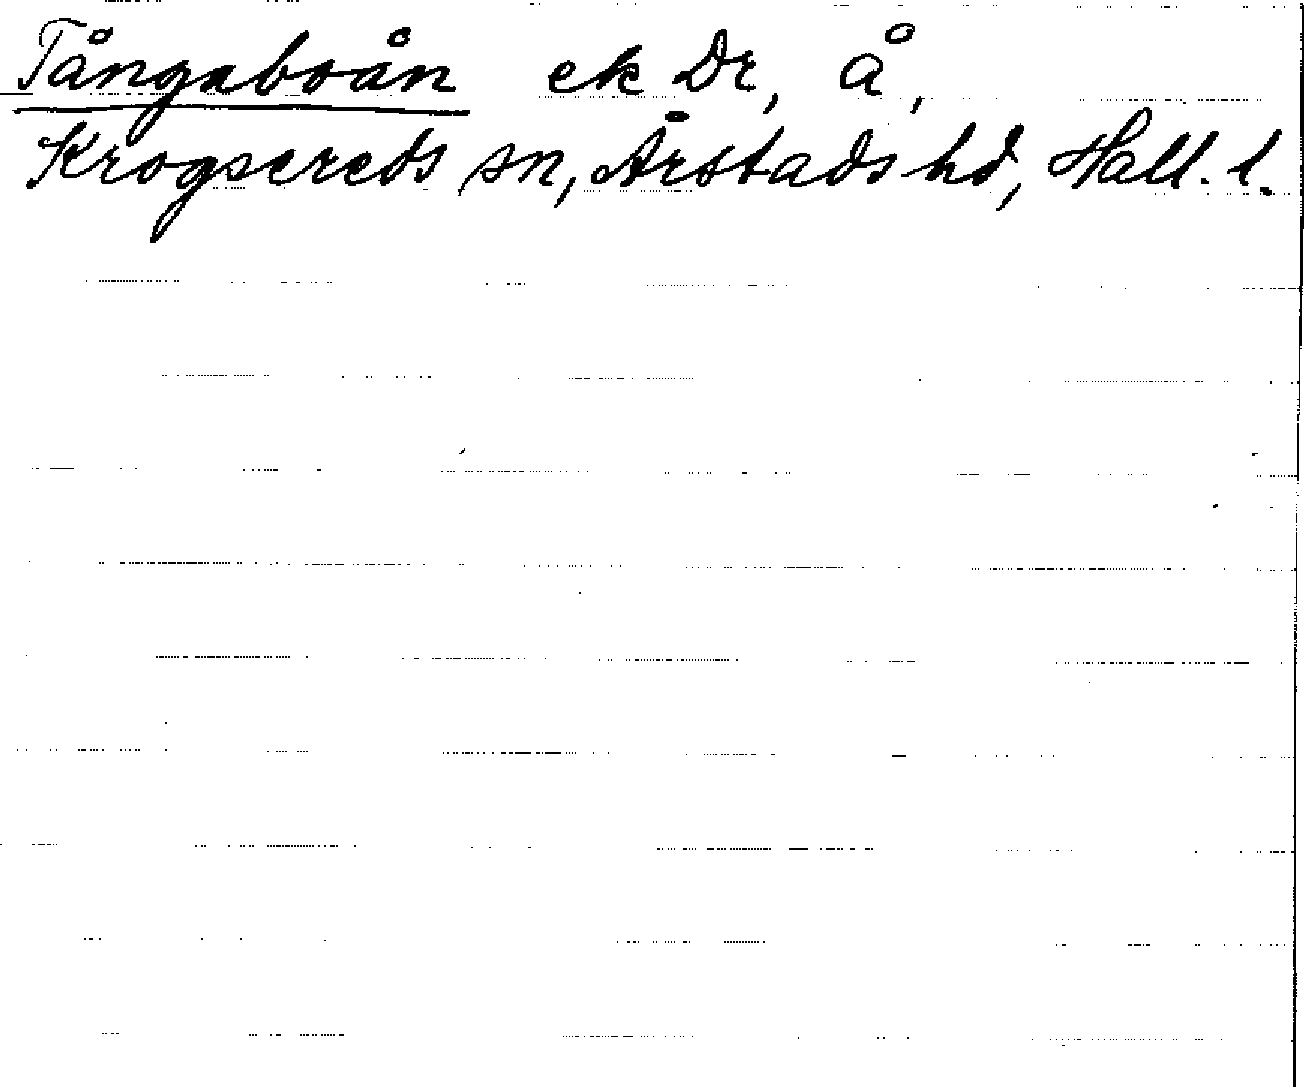 Tångaboån ek Dr, å,
Krogsereds sn, Årstads hd, Hall. l.